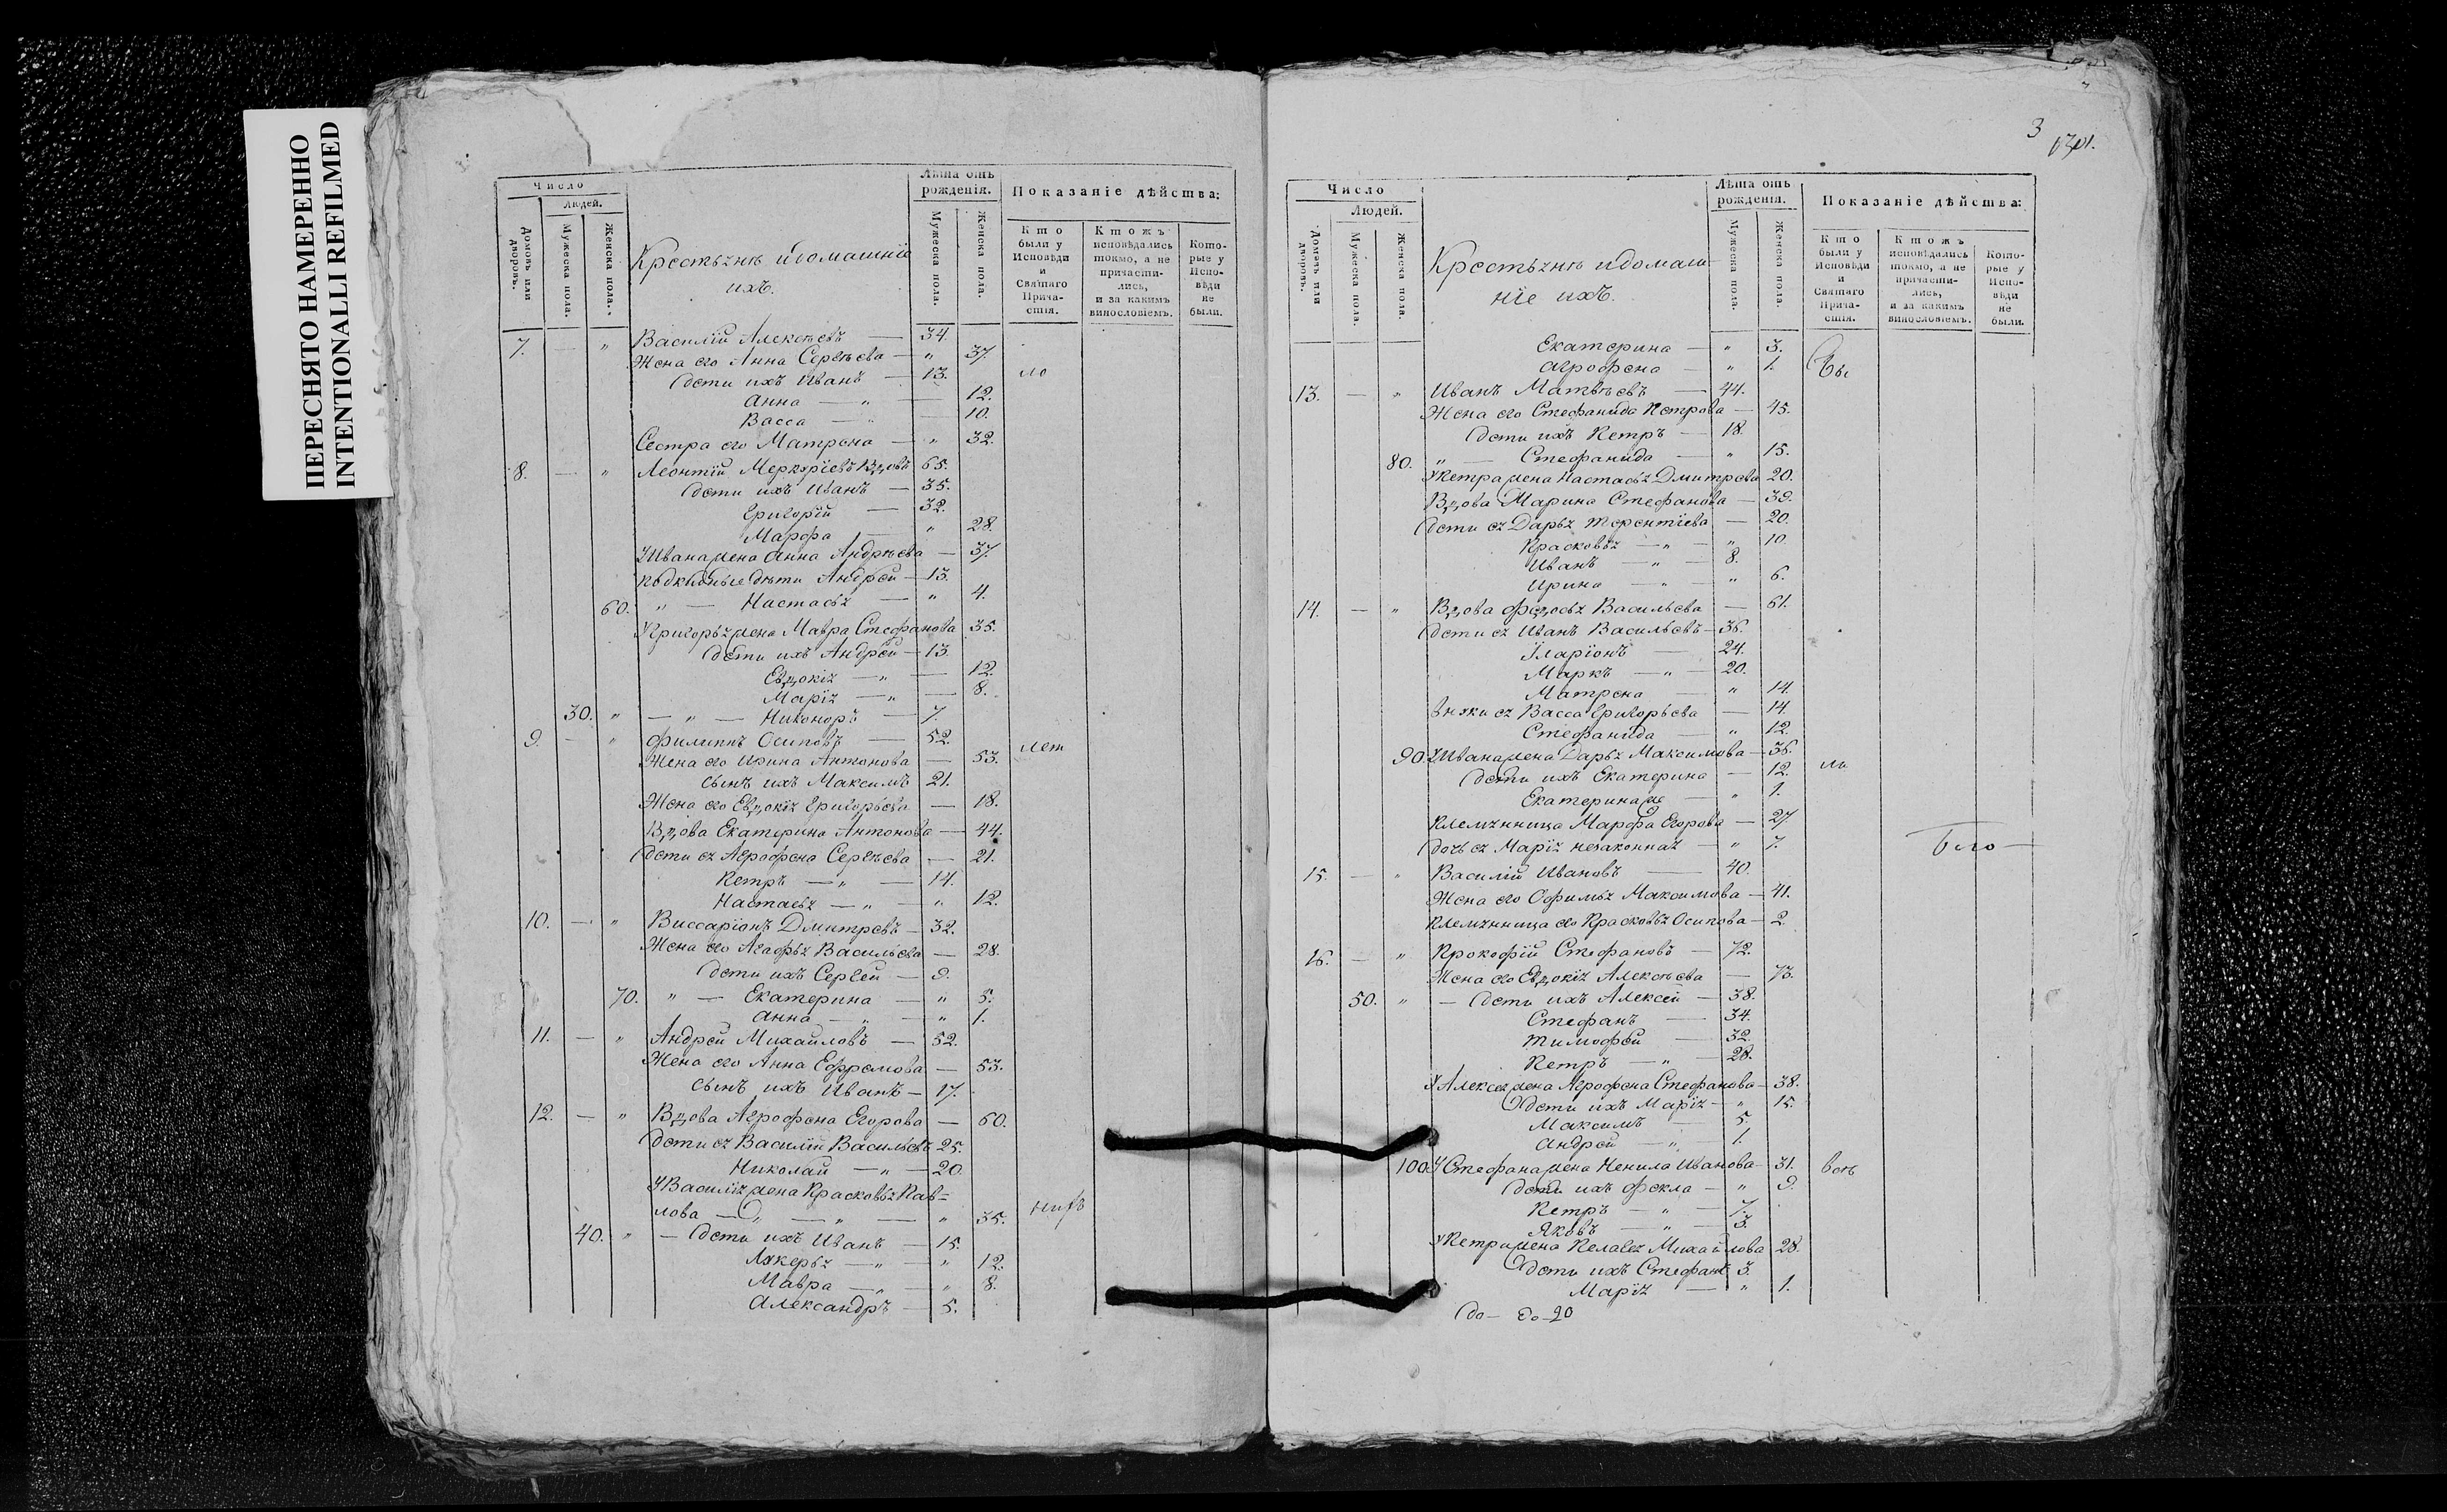 ПЕРЕСНЯТО НАМЕРЕННО
INTENTIONALLI REFILMED
Число
Людей.
Домовъ или дворовъ.
Мужеска пола.
Женска пола.
Крестьяне и домашніе
ихъ.
Лѣта отъ рожденія.
Мужеска пола.
Женска пола.
Показаніе дѣйства:
Кто были у Исповѣди и Святаго Причастія.
Ктожъ исповѣдались токмо, а не причастились, и за какимъ винословіемъ.
Которые у Исповѣди не были.
7. — " Василій Алексѣевъ — 34.
Жена его Анна Сергѣева — " 37.
Дети ихъ Иванъ — 13. ло
Анна — " — 12.
Васса — " — 10.
Сестра его Матрена — " 32.
8. — " Леонтій Меркуріевъ Вдовъ 65.
Дети ихъ Иванъ — 35.
Григорій — 32.
Марфа — " 28.
У Ивана жена Анна Андрѣева — 37.
Подкидные дѣти Андрей — 13.
60. " — Настасья — " 4.
У Григорья жена Мавра Стефанова 35.
Дети ихъ Андрей — 13.
Евдокія — " — 12.
Марія — " — 8.
30. " — " — Никоноръ — 7.
9. — " Филиппъ Осиповъ — 52.
Жена его Ирина Антонова — 53.
Сынъ ихъ Максимъ 21.
Жена его Евдокія Григорьева — 18.
Вдова Екатерина Антонова — 44.
Дети ея Агрофена Сергѣева — 21.
Петръ — " — 14.
Настасья — " — " 12.
10. — " Виссаріонъ Дмитревъ — 32.
Жена его Агафья Васильева — 28.
Дети ихъ Сергей — 9.
70. " — Екатерина — " 5.
Анна — " — " 1.
11. — " Андрей Михайловъ — 52.
Жена его Анна Ефремова — 53.
Сынъ ихъ Иванъ — 17.
12. — " Вдова Агрофена Егорова — 60.
Дети ея Василій Васильевъ 25.
Николай — " — 20.
У Василія жена Прасковья Пав=
лова — " — " — " 35.
40. " — Дети ихъ Иванъ — 15.
Лукерья — " — " 12.
Мавра — " — " 8.
Александръ — 5.
3
Число
Людей.
Домовъ или дворовъ.
Мужеска пола.
Женска пола.
Крестьяне и домаш-
ніе ихъ.
Лѣта отъ рожденія.
Мужеска пола.
Женска пола.
Показаніе дѣйства:
Кто были у Исповѣди и Святаго Причастія.
Ктожъ исповѣдались токмо, а не причастились, и за какимъ винословіемъ.
Которые у Исповѣди не были.
Екатерина — " 3.
Агрофена — " 1. Бы
13. — " Иванъ Матвѣевъ — 44.
Жена его Стефанида Петрова — 45.
Дети ихъ Петръ — 18.
80. " — Стефанида — " 15.
У Петра жена Настасья Дмитрева 20.
Вдова Марина Стефанова — 39.
Дети ея Дарья Терентіева — 20.
Прасковья — " — " 10.
Иванъ — " — 8.
Ирина — " — " 6.
14. — " Вдова Федосья Васильева — 61.
Дети ея Иванъ Васильевъ — 36.
Іларіонъ — 24.
Маркъ — " — 20.
Матрена — " 14.
Внуки ея Васса Григорьева — 14.
Стефанида — " 12.
90. У Ивана жена Дарья Максимова — 36.
Дети ихъ Екатерина — 12. ло
Екатерина же — " 1.
Племянница Марфа Егорова — 27.
Дочь ея Марія незаконная — " 7.
15. — " Василій Ивановъ — 40.
Жена его Офимья Максимова — 41.
Племянница его Прасковья Осипова — 2.
16. — " Прокофій Стефановъ — 72.
Жена его Евдокія Алексѣева — 73.
50. " — Дети ихъ Алексей — 38.
Стефанъ — 34.
Тимофей — 32.
Петръ — " — 28.
У Алексея жена Агрофена Стефанова — 38.
Дети ихъ Марія — " 15.
Максимъ — 5.
Андрей — " — 1.
100. У Стефана жена Ненила Иванова — 31.
Дети ихъ Фекла — " 9.
Петръ — " — 7.
Яковъ — " — 3.
У Петра жена Пелагея Михайлова 28.
Дети ихъ Стефанъ 3.
Марія — " 1.